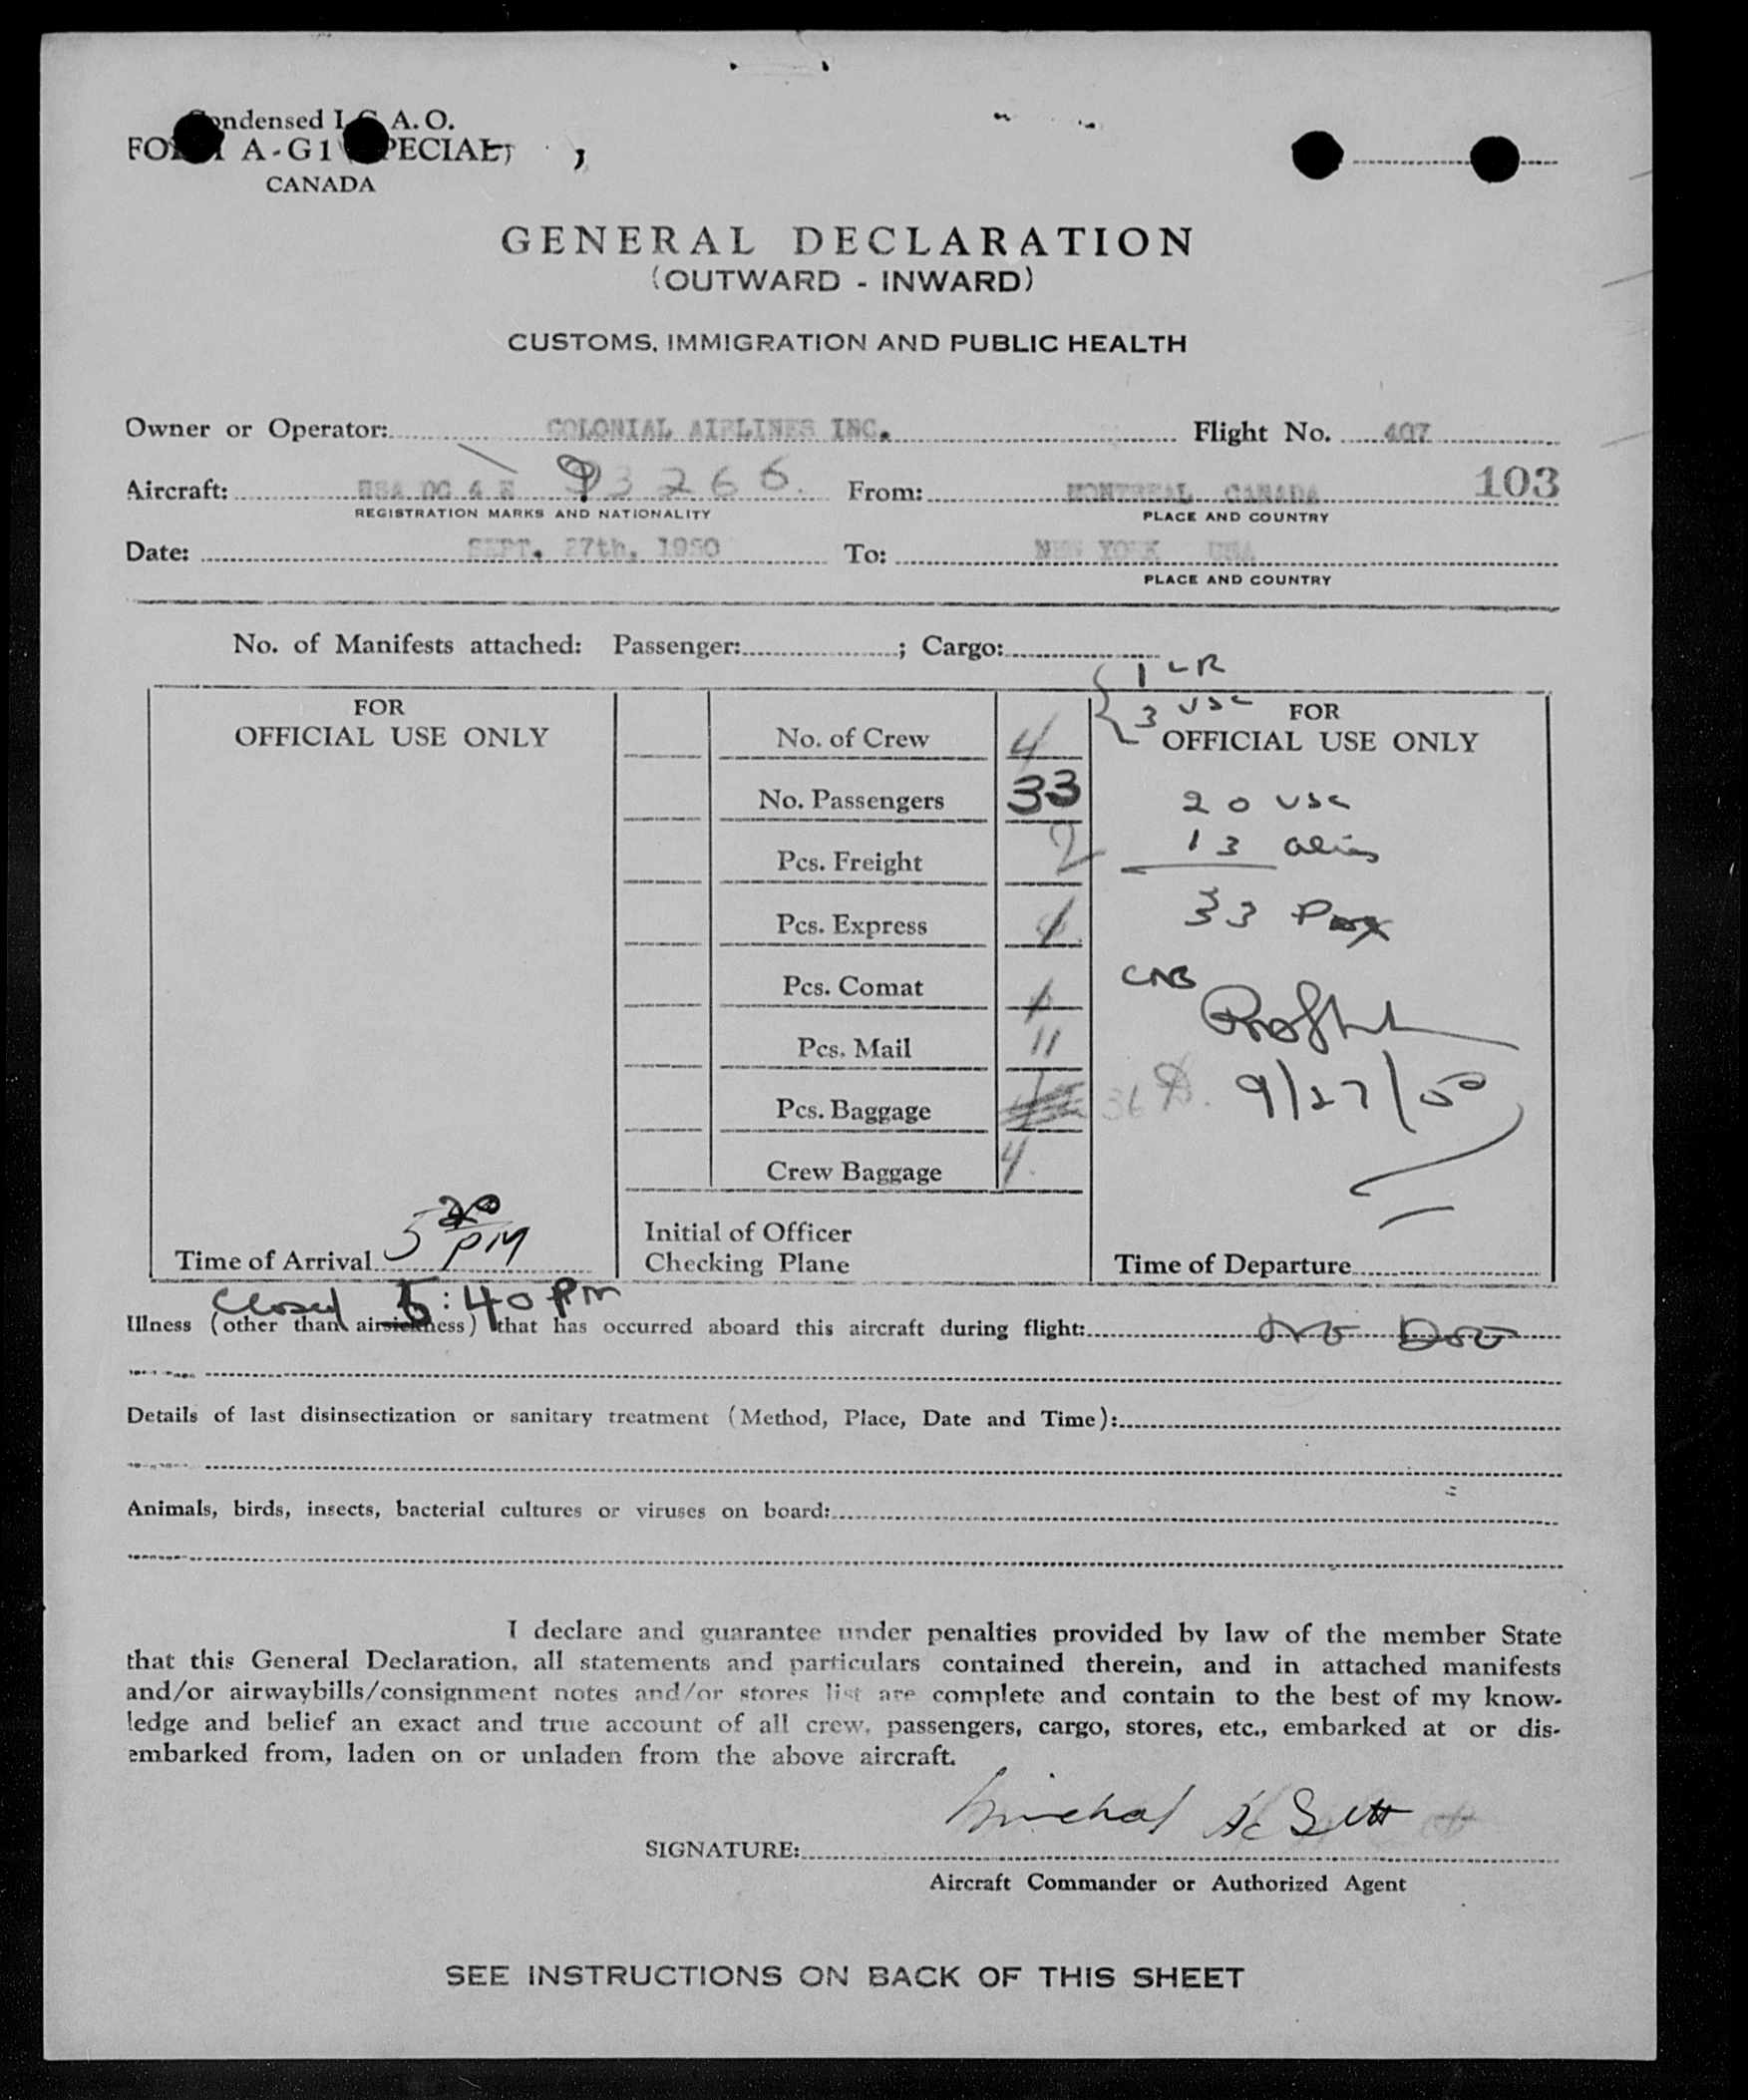 Condensed I.C.A.O.
FORM A-G1 (SPECIAL)
CANADA
GENERAL DECLARATION
(OUTWARD - INWARD)
CUSTOMS, IMMIGRATION AND PUBLIC HEALTH
Owner or Operator: COLONIAL AIRLINES INC. Flight No. 407
Aircraft: USA DC 4 93266. From: MONTREAL CANADA 103
REGISTRATION MARKS AND NATIONALITY PLACE AND COUNTRY
Date: SEPT. 27th, 1950 To: NEW YORK USA
PLACE AND COUNTRY
No. of Manifests attached: Passenger: ; Cargo:
1 LR
3 USC
FOR OFFICIAL USE ONLY
No. of Crew 4
FOR OFFICIAL USE ONLY
No. Passengers 33 20 USC
Pcs. Freight 2 13 alien
Pcs. Express 33 Pax
Pcs. Comat CNB
Pcs. Mail 11
Pcs. Baggage 36 9/27/50
Crew Baggage 4.
Time of Arrival 5 20 PM
Initial of Officer
Checking Plane
Time of Departure
Closed 5:40 PM
Illness (other than airsickness) that has occurred aboard this aircraft during flight:
Details of last disinsectization or sanitary treatment (Method, Place, Date and Time):
Animals, birds, insects, bacterial cultures or viruses on board:
I declare and guarantee under penalties provided by law of the member State
that this General Declaration, all statements and particulars contained therein, and in attached manifests
and/or airwaybills/consignment notes and/or stores list are complete and contain to the best of my know-
ledge and belief an exact and true account of all crew, passengers, cargo, stores, etc., embarked at or dis-
embarked from, laden on or unladen from the above aircraft.
SIGNATURE:
Aircraft Commander or Authorized Agent
SEE INSTRUCTIONS ON BACK OF THIS SHEET